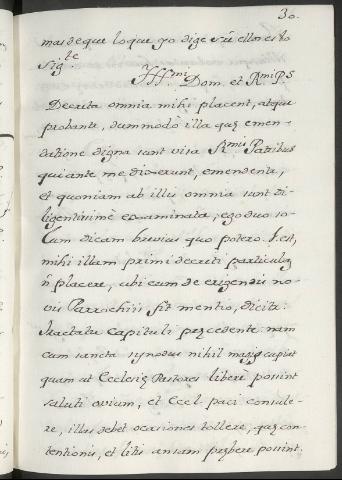 30.
mas de que lo que yo dige sú ellos es lo
sig.te
Jll.mi Dom. et R.mi P.s
Decreta omnia mihi placent, atque
probante, dummodo illa quę emen-
datione digna sunt visa R.mis Patribus
qui ante me dixerunt, emendente,
et quoniam ab illis omnia sunt di-
ligentissime examinata, ego duo so-
lum dicam brevius quo potero. J. est,
mihi illam primi decreti particulã
ñ placere, ubi cum de erigendis no-
vis Parrochiis fit mentio, dicit:
Tractatu capituli pręcedente. nam
cum sancta synodus nihil magis cupiat
quam ut Ecclesię Pastores liberè possint
saluti ovium, et Eccl. paci consule-
re, illas debet ocasiones tollere, quę con-
tentionis, et litis ansam prębere possint.